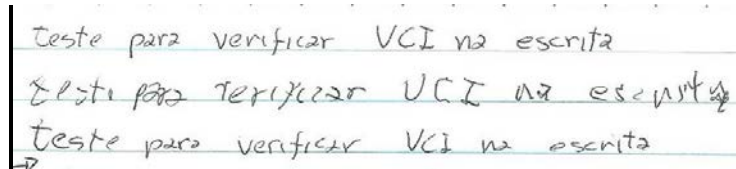 teste para verificar VCI na escrita
teste para verificar UCI na escrita
teste para verificar VCI na escrita